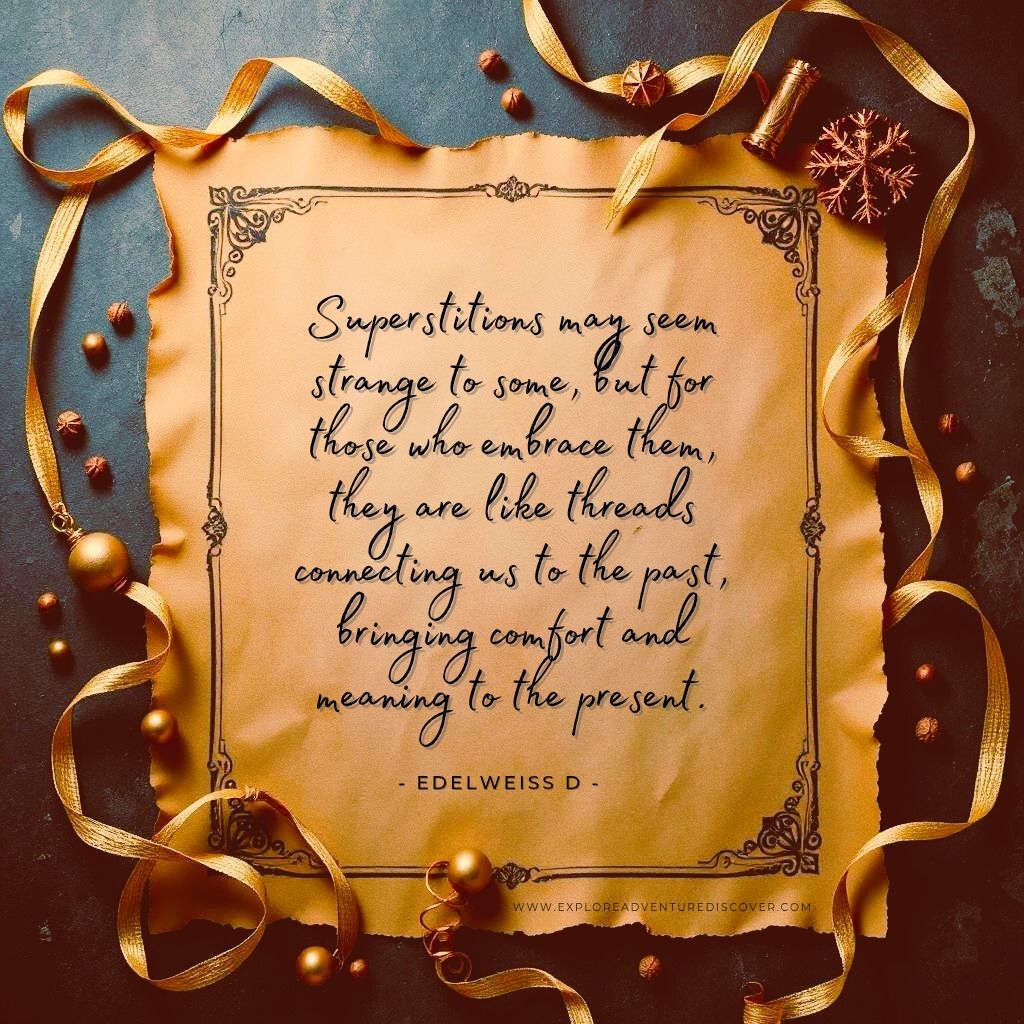 Superstitions may seem
strange to some, but for
those who embrace them,
they are like threads
connecting us to the past,
bringing comfort and
meaning to the present.
- EDELWEISS D -
WWW.EXPLOREADVENTUREDISCOVER.COM